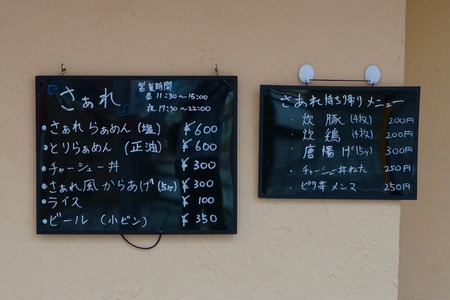 さぁれ
営業時間
昼 11:30～15:00
夜 17:30～22:00
・さぁれ らぁめん (塩) ¥600
・とりらぁめん (正油) ¥600
・チャーシュー丼 ¥300
・さぁれ風からあげ(5ヶ) ¥300
・ライス ¥100
・ビール (小ビン) ¥350
さぁれ持ち帰りメニュー
・炊豚(4枚) 200円
・炊鶏(4枚) 200円
・唐揚げ(5ヶ) 300円
・チャーシュー丼ねた 250円
・ピリ辛メンマ 250円